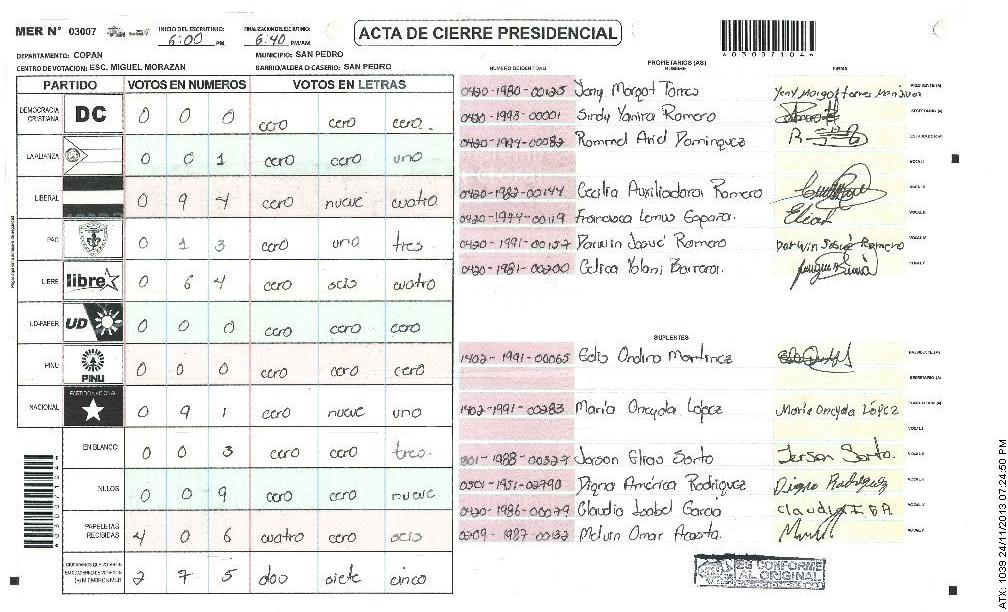 MER N° 03007
INICIO DEL ESCRUTINIO: 6:00 PM
FINALIZACION DEL ESCRUTINIO: 6:40 PM/AM
ACTA DE CIERRE PRESIDENCIAL
DEPARTAMENTO: COPAN
MUNICIPIO: SAN PEDRO
CENTRO DE VOTACION: ESC. MIGUEL MORAZAN
BARRIO/ALDEA O CASERIO: SAN PEDRO
PARTIDO VOTOS EN NUMEROS VOTOS EN LETRAS
DEMOCRACIA CRISTIANA DC 0 0 0 cero cero cero.
LA ALIANZA 0 0 1 cero cero uno
LIBERAL 0 9 4 cero nueve cuatro
PAC 0 1 3 cero uno tres
LIBRE libre 0 6 4 cero seis cuatro
UD-FAPER UD 0 0 0 cero cero cero
PINU PINU 0 0 0 cero cero cero
NACIONAL PARTIDO NACIONAL 0 9 1 cero nueve uno
EN BLANCO 0 0 3 cero cero tres
NULOS 0 0 9 cero cero nueve
PAPELETAS RECIBIDAS 4 0 6 cuatro cero seis
2 7 5 dos siete cinco
PROPIETARIOS (AS)
NUMERO DE IDENTIDAD NOMBRE FIRMA
0420-1980-00125 Yeny Margot Torres PRESIDENTE (A)
0420-1993-00001 Sindy Yanira Romero SECRETARIO (A)
0420-1994-00082 Rommel Ariel Dominguez ESCRUTADOR (A)
VOCAL I
0420-1982-00144 Cecilia Auxiliadora Romero VOCAL II
0420-1974-00119 Francisca Lemus Esparsa. VOCAL III
0420-1991-00157 Darwin Josué Romero Darwin Josué Romero VOCAL IV
0420-1981-00200 Celica Yolani Barrera. VOCAL V
SUPLENTES
1402-1991-00065 Edis Ondina Martinez PRESIDENTE (A)
SECRETARIO (A)
1402-1991-00283 María Oneyda López María Oneyda López ESCRUTADOR (A)
VOCAL I
1301-1988-00327 Jerson Elias Sorto Jerson Sorto. VOCAL II
0501-1951-02790 Digna América Rodriguez Digna Rodriguez VOCAL III
0420-1986-00079 Claudia Isabel Garcia VOCAL IV
0209-1987-00132 Melvin Omar Acosta. VOCAL V
ES CONFORME
AL ORIGINAL
ATX 1039 24/11/2013 07:24:50 PM